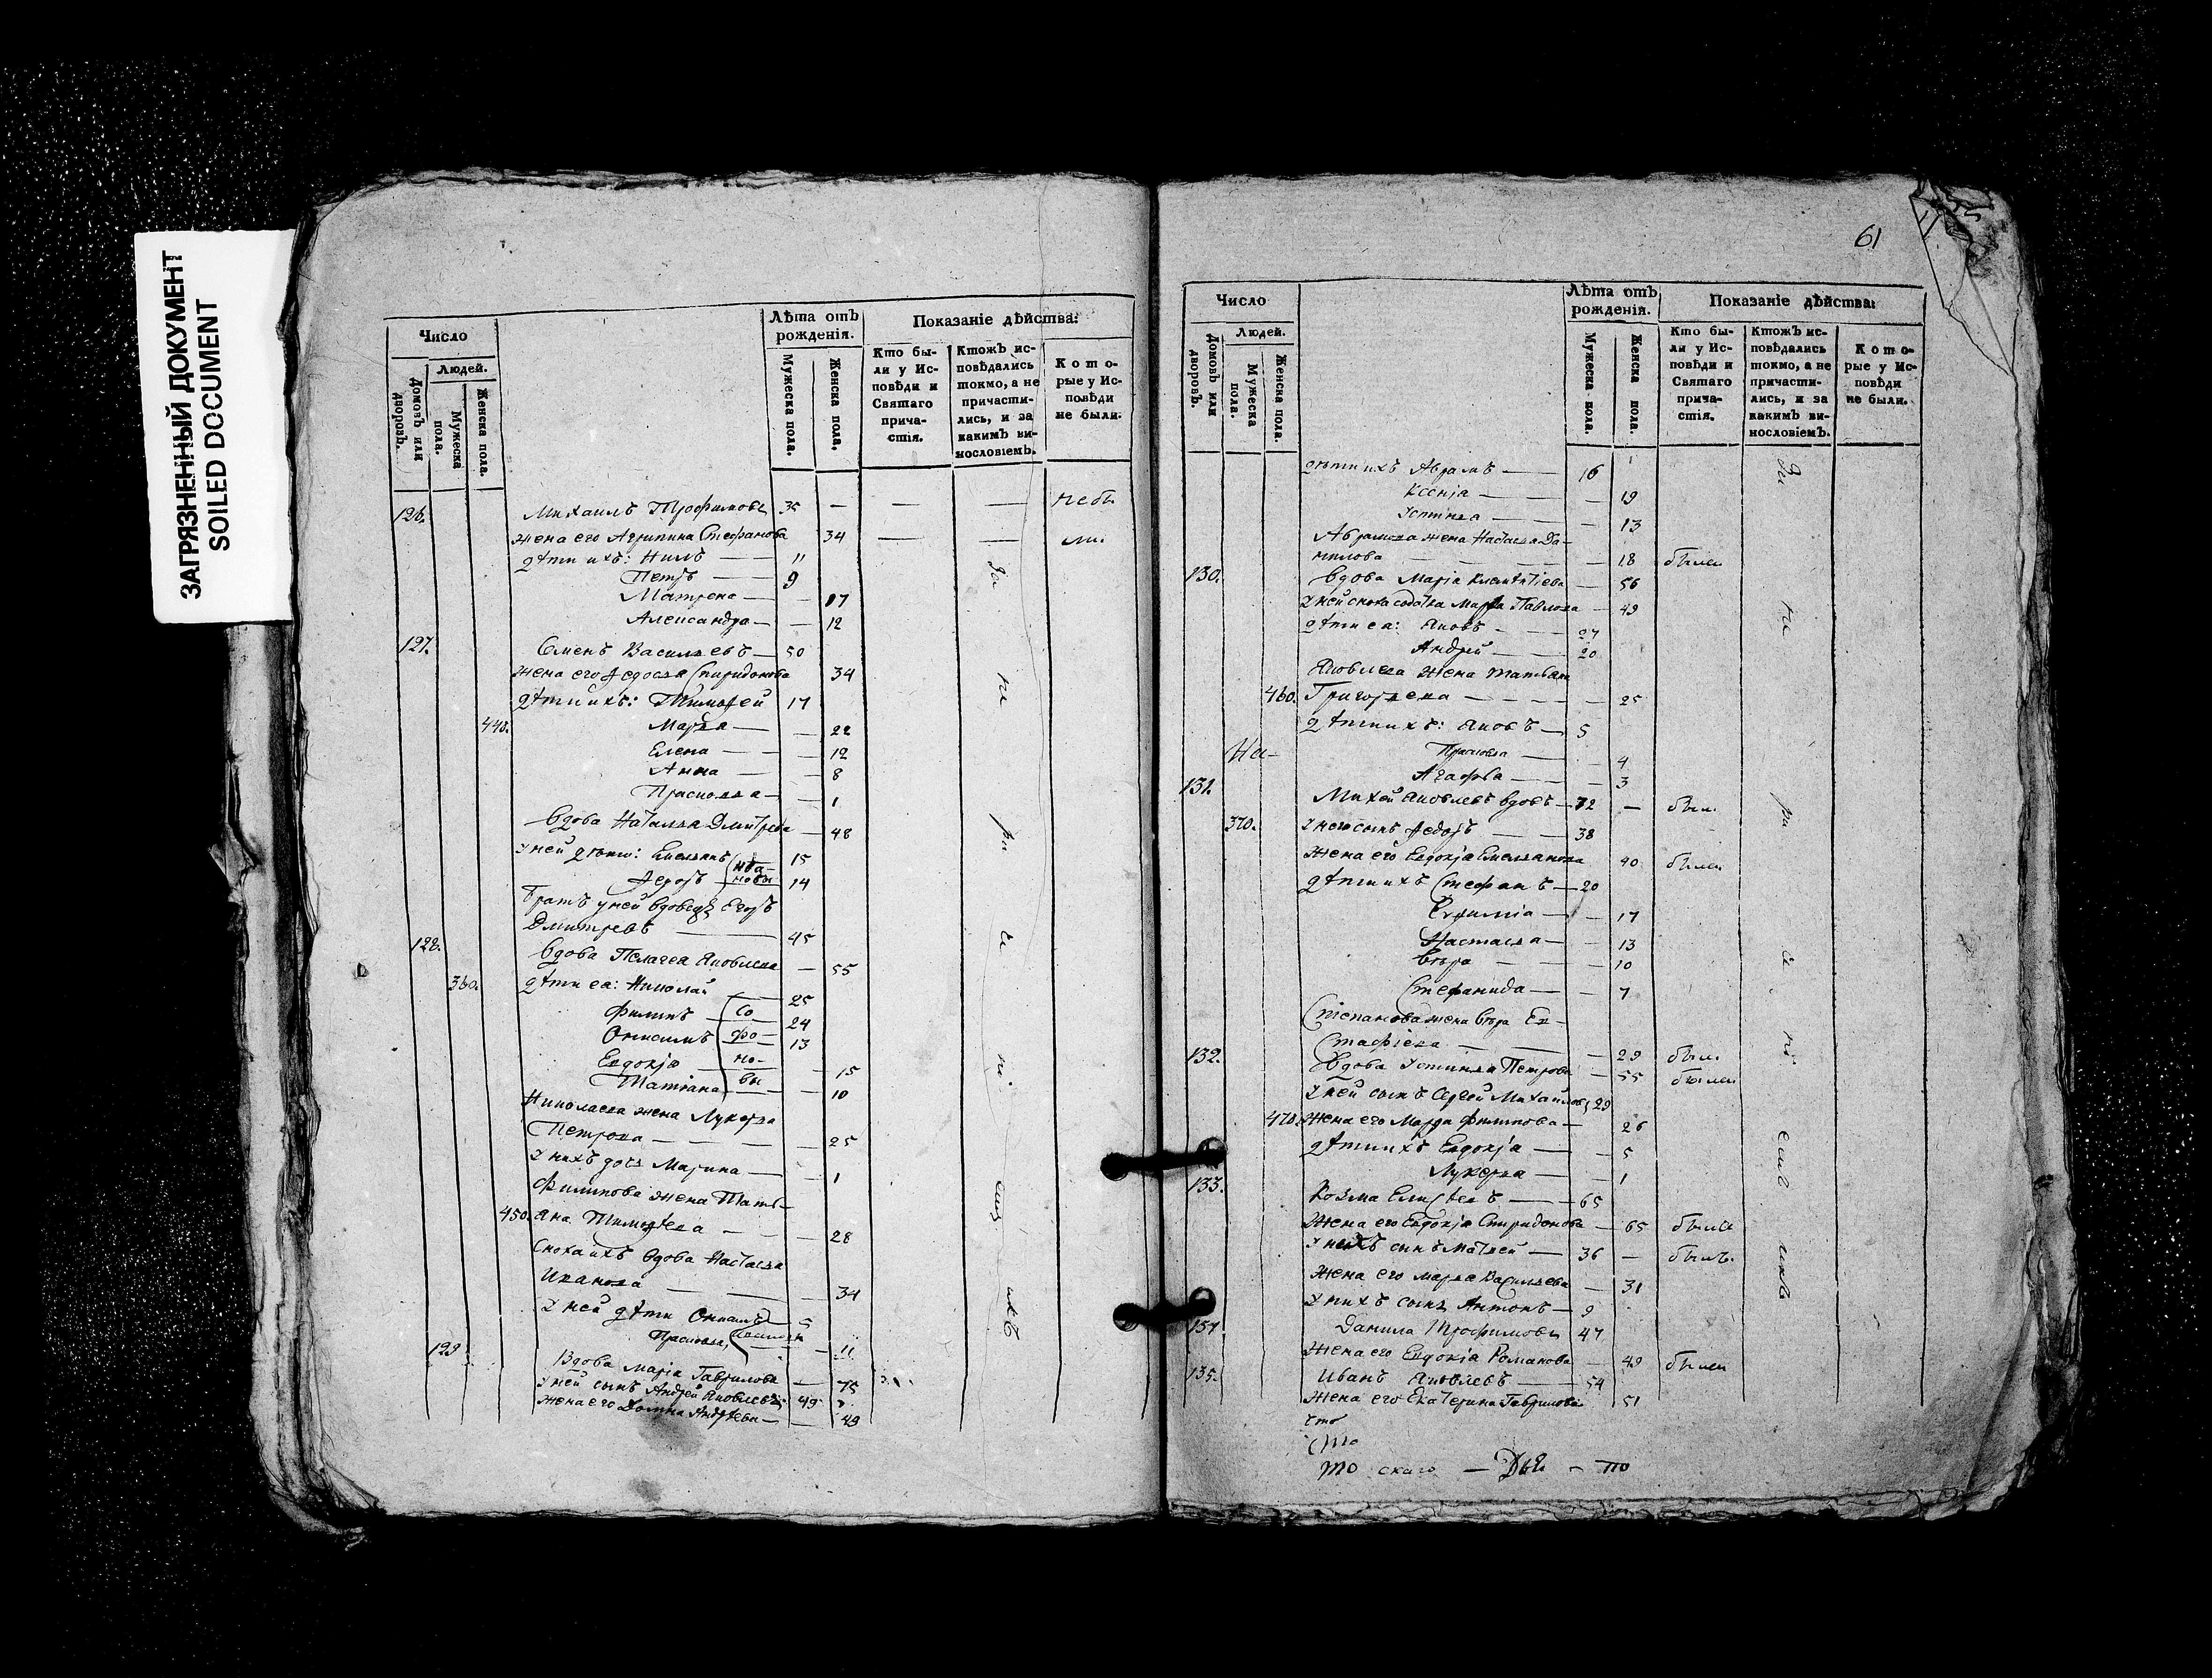 ЗАГРЯЗНЕННЫЙ ДОКУМЕНТ
SOILED DOCUMENT
Число
Людей.
Домовъ или дворовъ.
Мужеска пола.
Женска пола.
Лѣта отъ рожденія.
Мужеска пола.
Женска пола.
Показаніе дѣйства:
Кто были у Исповѣди и Святаго причастія.
Ктожъ исповѣдались токмо, а не причастились, и за какимъ винословіемъ.
Которые у Исповѣди не были.
126. Михаилъ Трофимовъ 35 — — — небы
жена его Агрипина Стефанова 34 — — ли.
дѣти ихъ: Нилъ — 11
Петръ — 9
Матрена — — 17
Александра — — 12
127. Семенъ Васильевъ — 50
жена его Федосья Спиридонова 34
дѣти ихъ: Тимофей 17
440. Марья — — 22
Елена — — 12
Анна — — 8
Прасковья — — 1
Вдова Наталья Дмитрева — 48
У ней дѣти: Емельянъ 15
Федоръ 14
Ивановы
Братъ у ней вдовецъ Егоръ
Дмитревъ — 45
128. Вдова Пелагея Яковлева — 55
360. дѣти ея: Николай — 25
Филипъ — 24
Онисимъ — 13
Евдокія — 15
Татіана — 10
Софоновы
Николаева жена Лукерья
Петрова — — — 25
У нихъ дочь Марина — — 1
Филипова жена Тать-
450. яна Тимофеева — — 28
Сноха ихъ вдова Настасья
Иванова — — 34
У ней дѣти Онисимъ 5
Прасковья, — 11
129. Вдова Марія Гаврилова — 75
У ней сынъ Андрей Яковлевъ 49
жена его Домна Андрѣева — — 49
За не ра че ні емъ ихъ
61
Число
Людей.
Домовъ или дворовъ.
Мужеска пола.
Женска пола.
Лѣта отъ рожденія.
Мужеска пола.
Женска пола.
Показаніе дѣйства:
Кто были у Исповѣди и Святаго причастія.
Ктожъ исповѣдались токмо, а не причастились, и за какимъ винословіемъ.
Которые у Исповѣди не были.
дѣти ихъ Абрамъ — 16
Ксенія — — 19
Устинья — — 13
Абрамова жена Настасья Да-
нилова — — 18 была
130. Вдова Марія Клементіева — 56
У ней сноха Марфа Павлова — 49
дѣти ея: Яковъ — 27
Андрей — 20
Яковлева жена Татьяна
460. Григорьева — — 25
дѣти ихъ: Яковъ — 5
На- Прасковья — — 4
Агафья — — 3
131. Михей Яковлевъ вдовъ — 72 — был.
370. У него сынъ Федоръ — 38
Жена его Евдокія Емельянова 40 была
дѣти ихъ Стефанъ — 20
Евфимія — — 17
Настасья — — 13
Вѣра — — 10
Стефанида — — 7
Степанова жена Вѣра Ев-
стафіева — — 29 был.
132. Вдова Устинья Петрова — 55 была
У ней сынъ Сергей Михайловъ 29
470. Жена его Марья Филипова — 26
дѣти ихъ Евдокія — — 5
Лукерья — — 1
133. Козма — 65
Жена его Евдокія Спиридонова — 65 была
У нихъ сынъ Матвей — 36 — былъ.
Жена его Марья Васильева — 31
У нихъ сынъ Антонъ — 9
Данила Трофимовъ 47
Жена его Евдокія Романова — 49 была
135. Иванъ Яковлевъ — 54
Жена его Екатерина Гаврилова 51